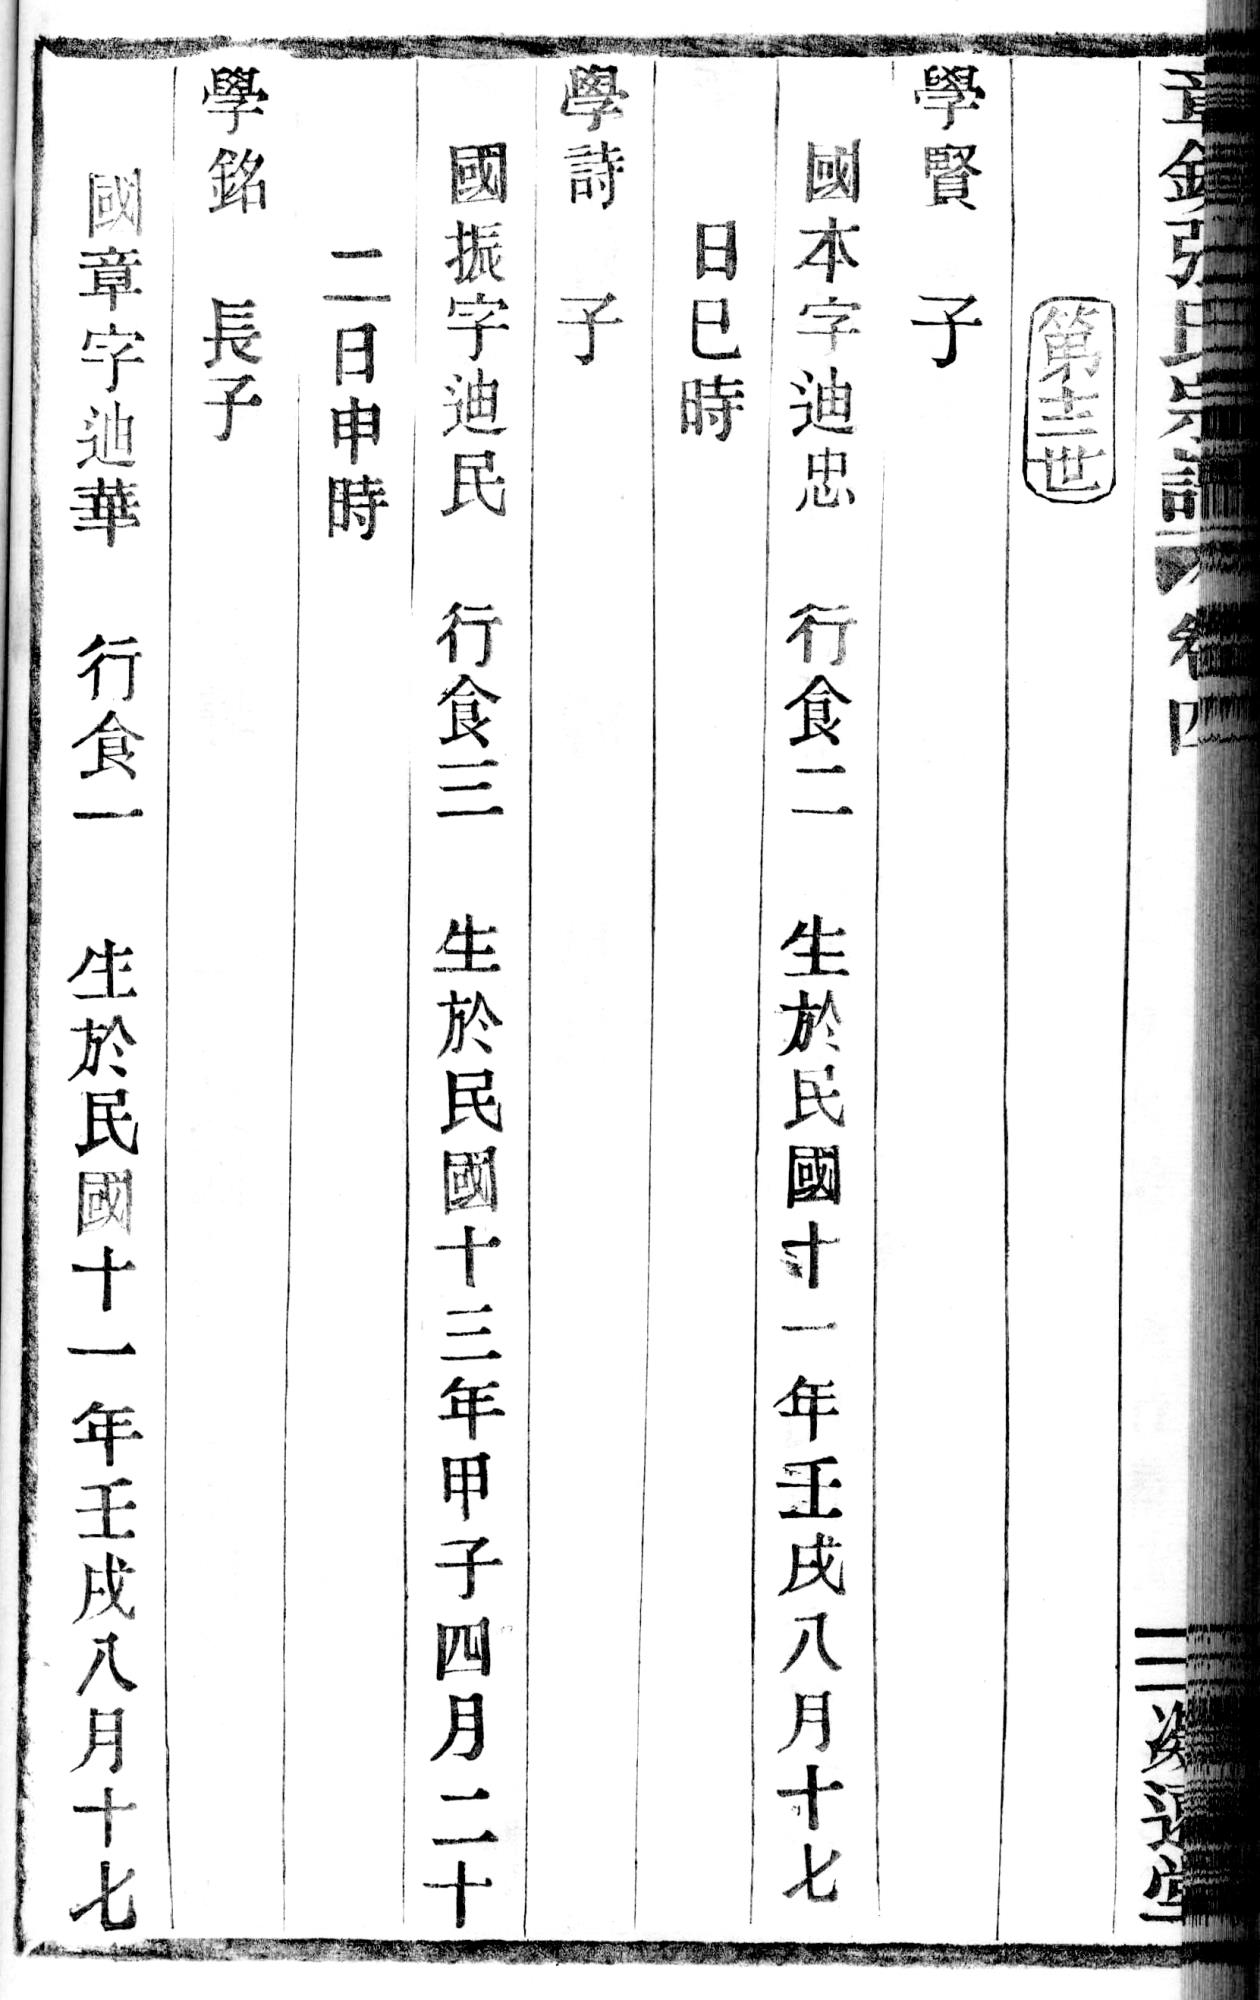 張氏宗譜 卷四 二
第十三世
學賢 子
國本字迪忠 行食二 生於民國十一年壬戌八月十七
日巳時
學詩 子
國振字迪民 行食三 生於民國十三年甲子四月二十
二日申時
學銘 長子
國章字迪華 行食一 生於民國十一年壬戌八月十七